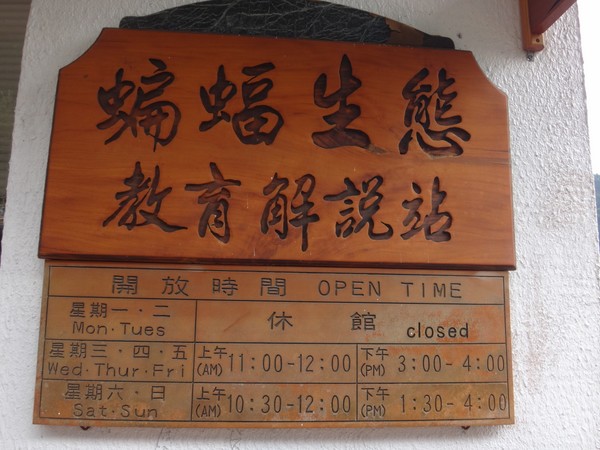 蝙蝠生態
教育解說站
開放時間 OPEN TIME
星期一·二 休館 closed
Mon·Tues
星期三·四·五 上午 11:00-12:00 下午 3:00-4:00
Wed·Thur·Fri (AM) (PM)
星期六·日 上午 10:30-12:00 下午 1:30-4:00
Sat·Sun (AM) (PM)